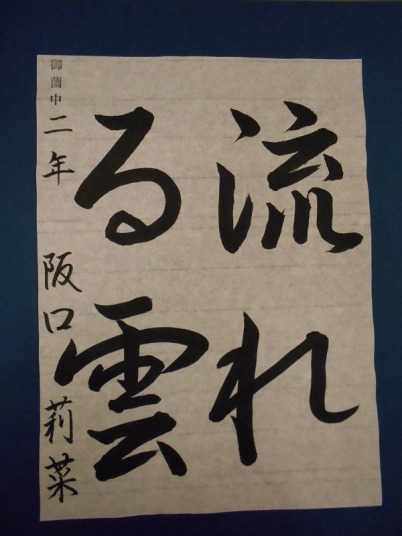 流れ
る雲
御薗中 二年 阪口莉菜